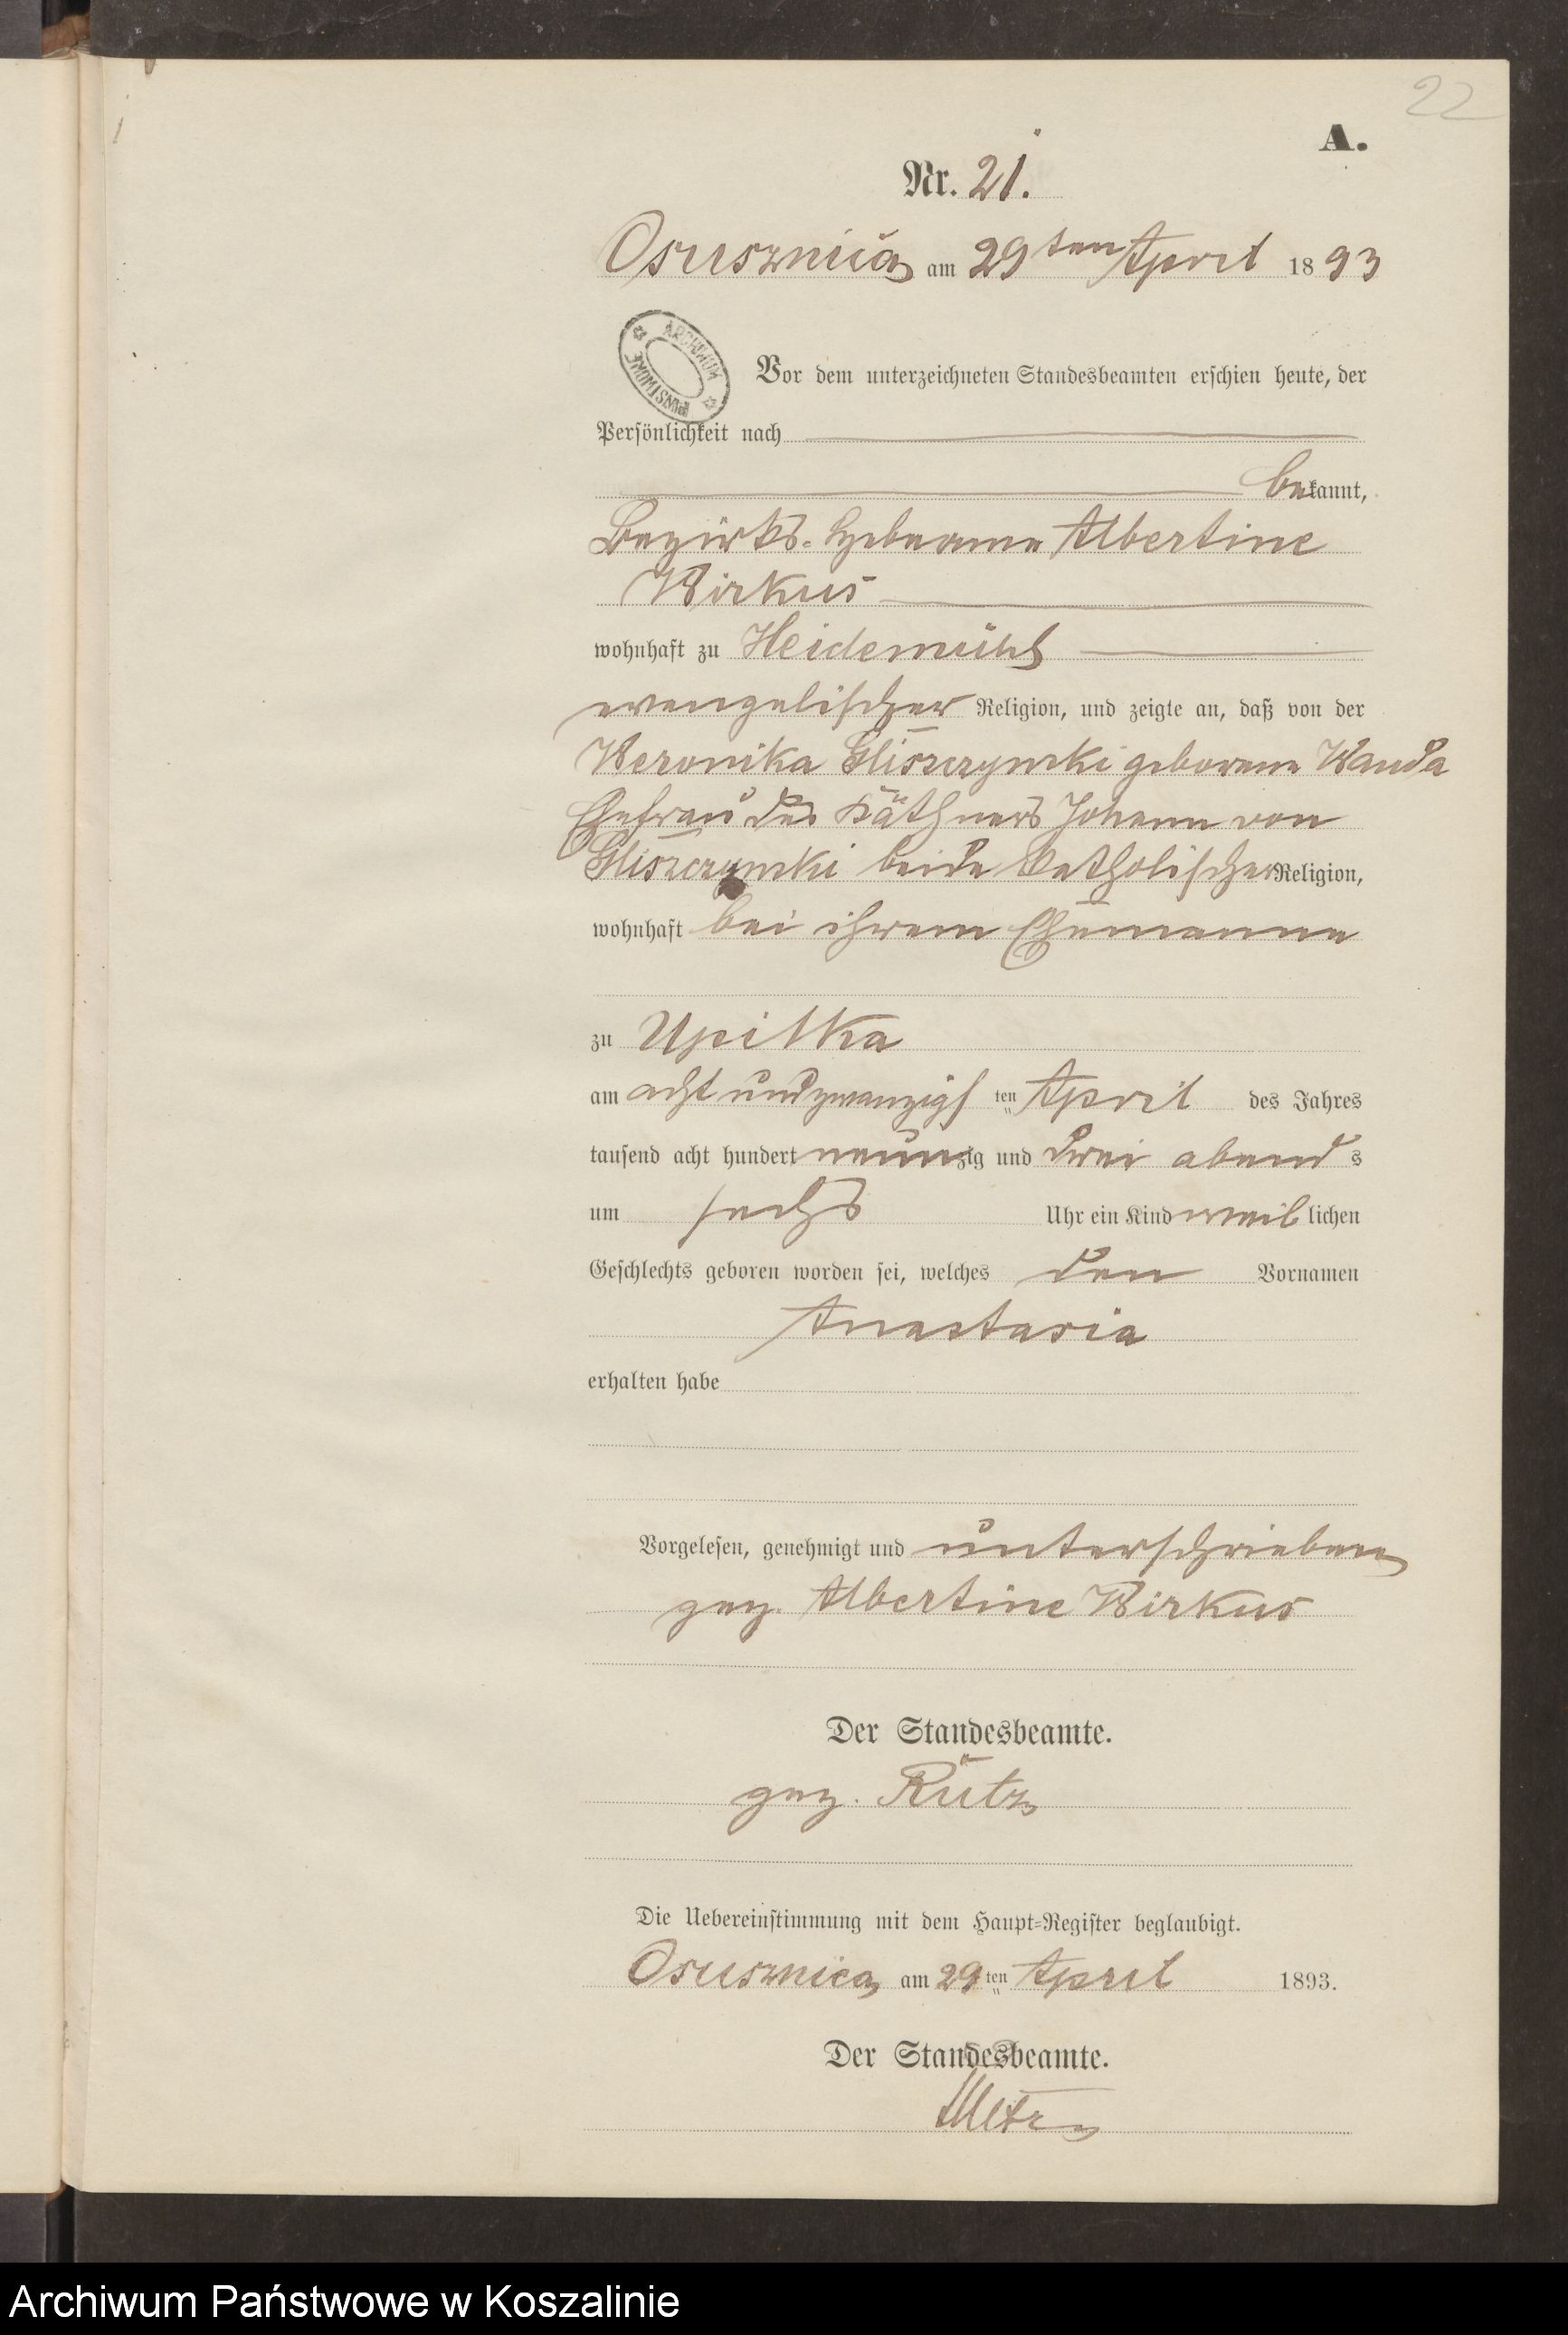 22
A.
Nr. 21.
Osusznica am 29ten April 1893
ARCHIWUM PAŃSTWOWE
Vor dem unterzeichneten Standesbeamten erschien heute, der
Persönlichkeit nach
bekannt,
Bezirks-Hebamme Albertine
Wirkus
wohnhaft zu Heidemühl
evangelischer Religion, und zeigte an, daß von der
Veronika Gliszczynski geborene Wanda
Ehefrau des Käthners Johann von
Gliszczynski beide katholischer Religion,
wohnhaft bei ihrem Ehemanne
zu Upilka
am acht und zwanzigsten April des Jahres
tausend acht hundert neunzig und drei abends
um sechs Uhr ein Kind weiblichen
Geschlechts geboren worden sei, welches den Vornamen
Anastasia
erhalten habe
Vorgelesen, genehmigt und unterschrieben
gez. Albertine Wirkus
Der Standesbeamte.
gez. Rütz
Die Uebereinstimmung mit dem Haupt-Register beglaubigt.
Osusznica am 29ten April 1893.
Der Standesbeamte.
Archiwum Państwowe w Koszalinie